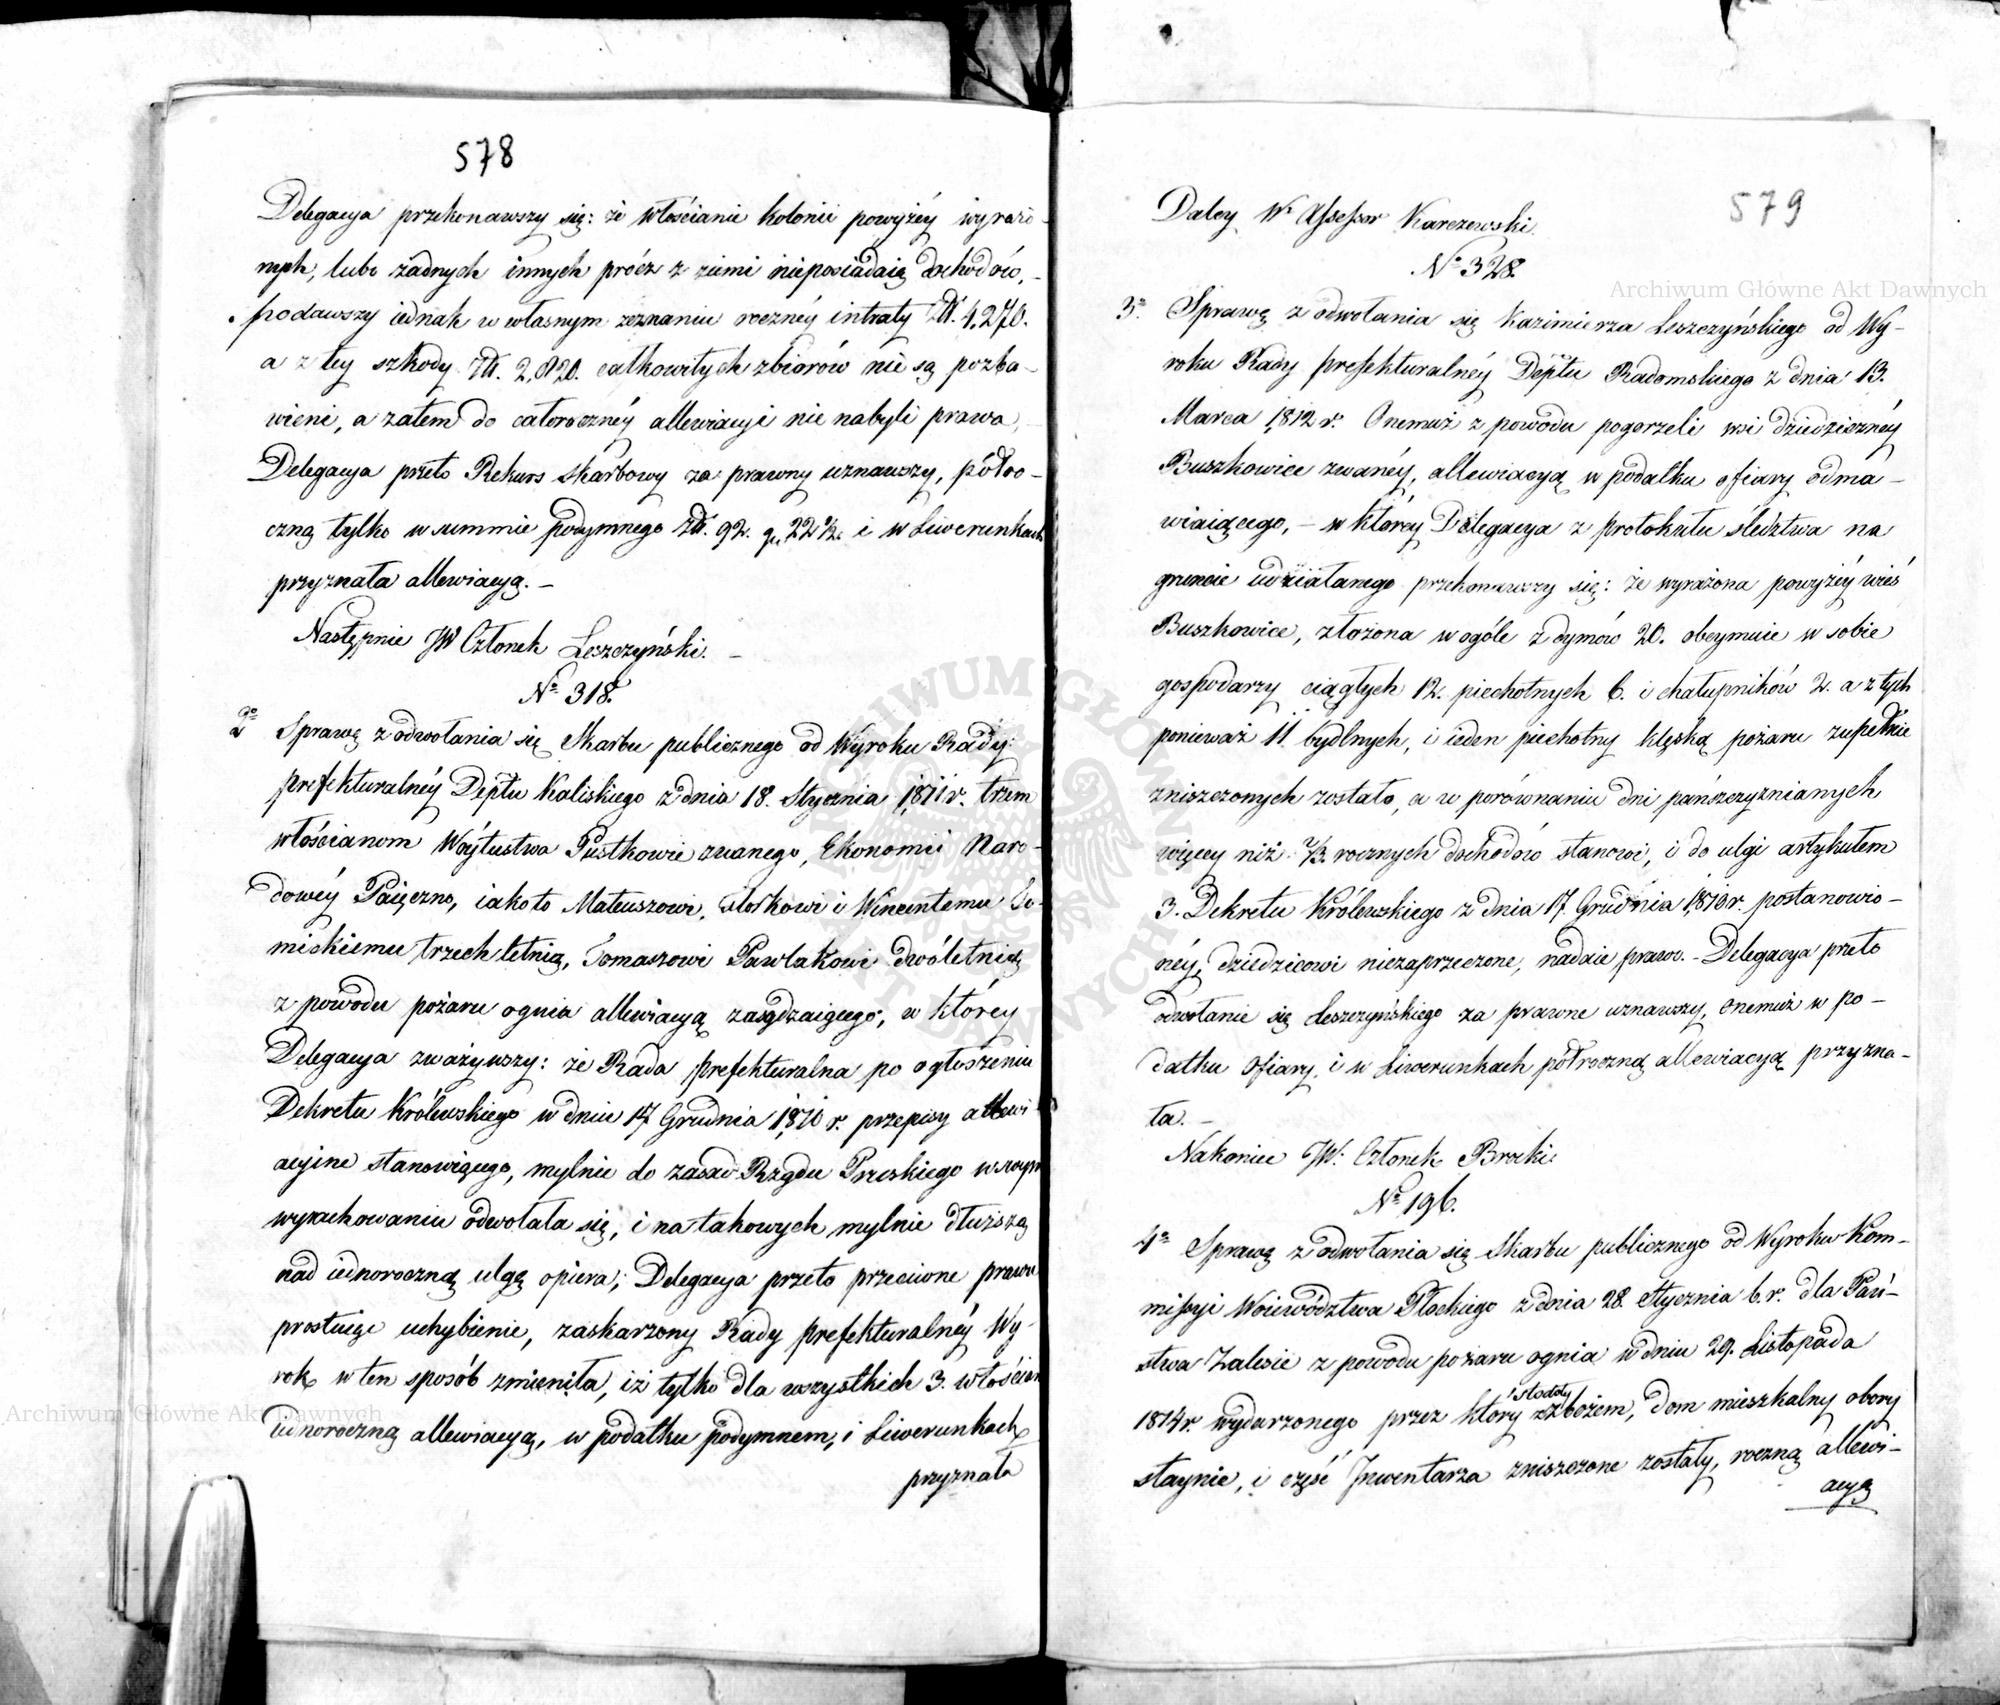 578
Delegacya przekonawszy się: że włościanie kolonii powyżéy wyrażo-
nych, lubo żadnych innych prócz z ziemi nieposiadaią dochodów,
podawszy iednak w własnym zeznaniu roczney intraty Zł. 4,270.
a z tey szkody Zł. 2,820. całkowitych zbiorów nie są pozba-
wieni, a zatem do całoroczney allewiacyi nie nabyli prawa,
Delegacya przeto Rekurs skarbowy za prawny uznawszy, półro-
czną tylko w summie podymnego Zł. 92. gr. 22½. i w Liwerunkach
przyznała allewiacyą. –
Następnie JW Członek Leszczyński. –
No 318.
2o Sprawę z odwołania się Skarbu publicznego od Wyroku Rady
prefekturalnéy Deptu Kaliskiego z dnia 18. Stycznia 1811 r. trzem
włościanom Wóytustwa Pustkowie zwanego, Ekonomii Naro-
dowéy Paięczno, iako to Mateuszowi, i Wincentemu
miskiemu trzechletnią, Tomaszowi Pawlakowi dwóletnią
z powodu pożaru ognia allewiacyą zasądzaiącego, w którey
Delegacya zważywszy: że Rada prefekturalna po ogłoszeniu
Dekretu Królewskiego w dniu 17 Grudnia 1810 r. przepisy allewi-
acyine stanowiącego, mylnie do zasad Rządu Pruskiego w
wyrachowaniu odwołała się, i na takowych mylnie dłuższą
nad iednoroczną ulgę opiera; Delegacya przeto przeciwne prawu
prostuiąc uchybienie, zaskarżony Rady prefekturalnéy Wy-
rok w ten sposób zmieniła, iż tylko dla wszystkich 3. włościan
iednoroczną allewiacyą, w podatku podymnem, i Liwerunkach
przyznała
579
Daley Wo Assessor Karczewski
No 328.
3o Sprawę z odwołania się Kazimierza Leszczyńskiego od Wy-
roku Rady prefekturalnéy Deptu Radomskiego z dnia 13.
Marca 1812 r. Onemuż z powodu pogorzeli wsi dziedzicznéy
Buszkowice zwanéy, allewiacyą w podatku ofiary odma-
wiaiącego, – w którey Delegacya z protokułu śledztwa na
gruncie udziałanego przekonawszy się: że wyrażona powyżéy wieś
Buszkowice, złożona w ogóle z dymów 20. obeymuie w sobie
gospodarzy ciągłych 12. piechotnych 6. i chałupników 2. a z tych
ponieważ 11. bydlnych, i ieden piechotny klęską pożaru zupełnie
zniszczonych zostało, a w porównaniu dni pańszczyznianych
więcey niż ⅓ rocznych dochodów stanowi, i do ulgi artykułem
3. Dekretu Królewskiego z dnia 17. Grudnia 1810 r. postanowio-
néy, dziedzicowi niezaprzeczone, nadaie prawo. – Delegacya przeto
odwołanie się Leszczyńskiego za prawne uznawszy, onemuż w po-
datku ofiary, i w Liwerunkach półroczną allewiacyą przyzna-
ła. –
Nakoniec JW. Członek Brocki.
No 196.
4o Sprawę z odwołania się Skarbu publicznego od Wyroku Kom-
missyi Woiewództwa Płockiego z dnia 28. Stycznia b. r. dla Pań-
stwa Zalesie z powodu pożaru ognia w dniu 29. Listopada
1814 r. wydarzonego przez który stodoły z zbożem, dom mieszkalny obory
staynie, i część Inwentarza zniszczone zostały, roczną allewi-
acyą
Archiwum Główne Akt Dawnych
Archiwum Główne Akt Dawnych
ARCHIWUM GŁÓWNE AKT DAWNYCH